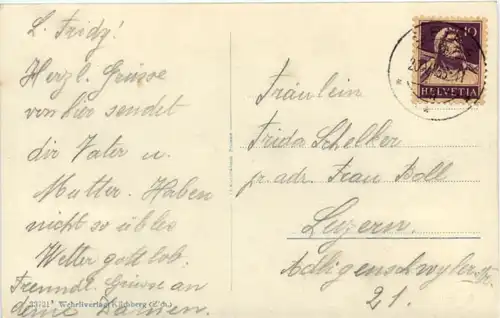 L. Fridy!
Herzl. Grüsse
von hier sendet
dir Vater u.
Mutter. Haben
nicht so übles
Wetter gottlob.
Freundl. Grüsse an
deine Damen.
Wehrliverlag Kilchberg (Zch.)
10
HELVETIA
Fräulein
Frida Schelker
pr. adr. Frau Boll
Luzern.
Adligenschwylerstr.
21.